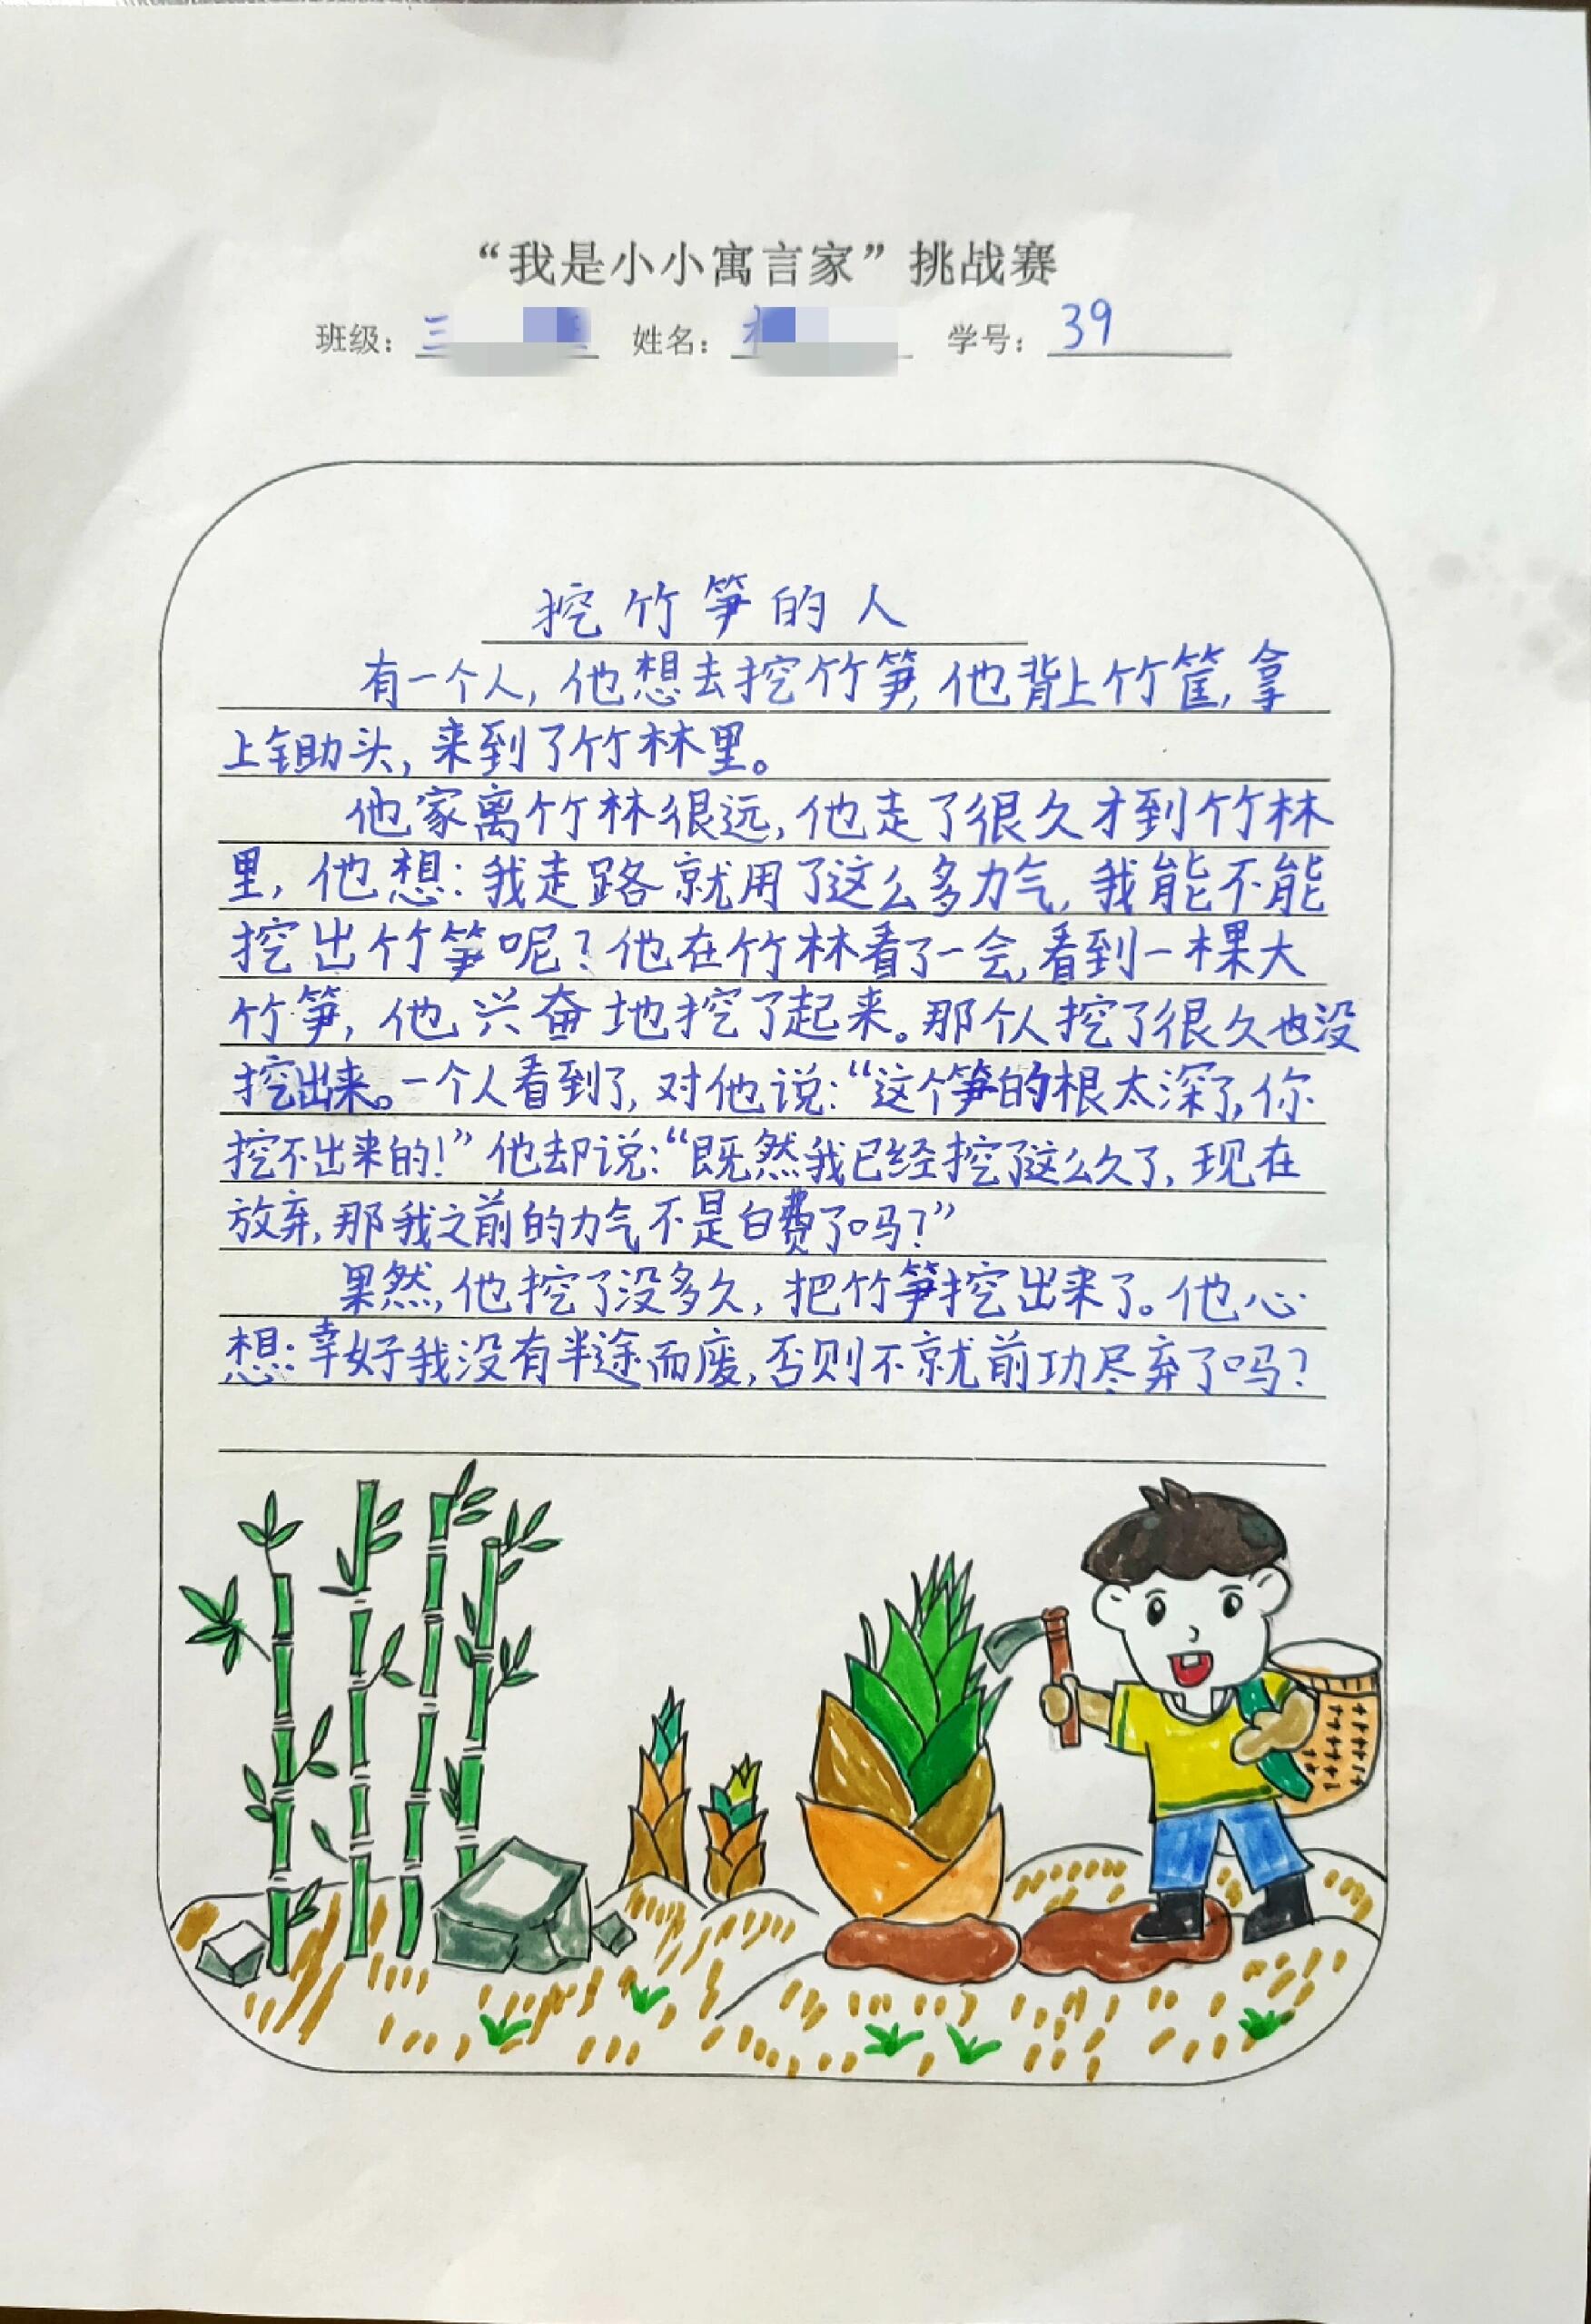 “我是小小寓言家”挑战赛
班级：三 姓名： 学号：39
挖竹笋的人
有一个人，他想去挖竹笋，他背上竹筐，拿
上锄头，来到了竹林里。
他家离竹林很远，他走了很久才到竹林
里，他想：我走路就用了这么多力气，我能不能
挖出竹笋呢？他在竹林看了一会，看到一棵大
竹笋，他兴奋地挖了起来。那个人挖了很久也没
挖出来。一个人看到了，对他说：“这个笋的根太深了，你
挖不出来的！”他却说：“既然我已经挖了这么久了，现在
放弃，那我之前的力气不是白费了吗？”
果然，他挖了没多久，把竹笋挖出来了。他心
想：幸好我没有半途而废，否则不就前功尽弃了吗？